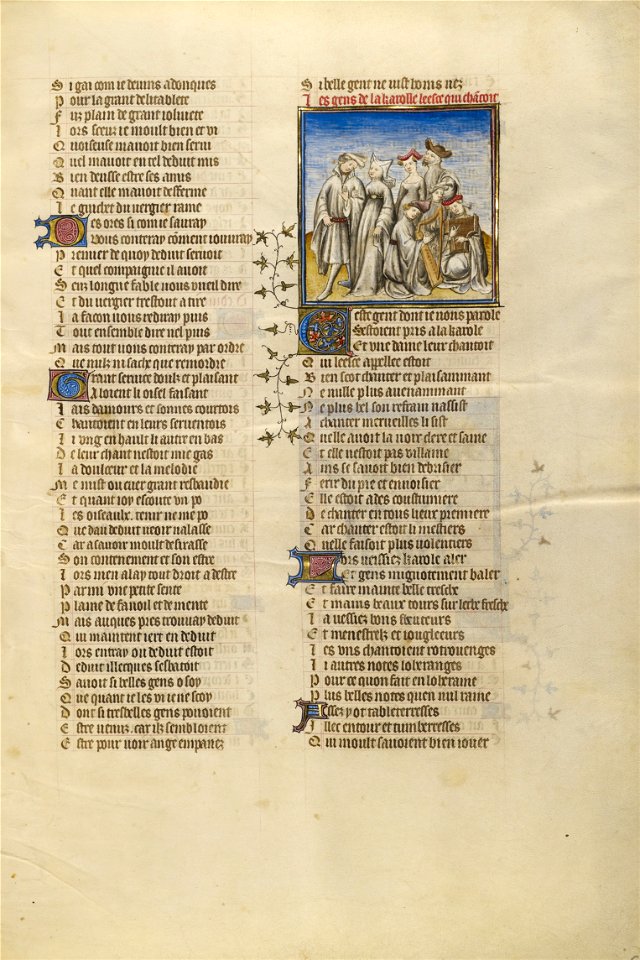 Si gai com ie deuins adonques
Pour la grant delitablete
Fuz plain de grant ioliuete
Lors sceuz ie moult bien et vi
Quoiseuse mauoit bien serui
Quel mauoit en tel deduit mis
Bien deusse estre ses amis
Quant elle mauoit desferme
Le guichet du vergier rame
Des ores si com ie sauray
Vous conteray coment iouuray
Premier de quoy deduit seruoit
Et quel compaignie il auoit
Senz longue fable uous vueil dire
Et du vergier trestout a tire
La facon uous rediray puis
Tout ensemble dire nel puis
Mais tout uous conteray par ordre
Que nulz ni sache que remordre
Grant seruice doulz et plaisant
Aloient li oisel faisant
Lais damours et sonnes courtois
Chantoient en leurs seruentois
Li vng en hault li autre en bas
De leur chant nestoit mie gas
La doulceur et la melodie
Me mist ou cuer grant resbaudie
Et quant ioy escoute vn po
Les oiseaulx tenir ne me po
Que dan deduit ueoir nalasse
Car a sauoir moult desirasse
Son contenement et son estre
Lors men alay tout droit a destre
Par mi vne petite sente
Plaine de fanoil et de mente
Mais auques pres trouuay deduit
Qui maintenant iert en deduit
Lors entray ou deduit estoit
Deduit illecques sesbatoit
Sauoit si belles gens o soy
Que quant ie les vi ie ne scoy
Dont si tresbelles gens pouoient
Estre uenuz car ilz sembloient
Estre pour uoir ange empanez
Si belle gent ne vist homs nez
Les gens de la karolle leesce qui chantoit
Ceste gent dont ie uous parole
Sestoient pris a la karole
Et vne dame leur chantoit
Qui leesce appellee estoit
Bien scot chanter et plaisamment
Ne nulle plus auenamment
Ne plus bel son refrain nassist
A chanter merueilles li sist
Quelle auoit la uoix clere et saine
Et elle nestoit pas villaine
Ains se sauoit bien debrisier
Ferir du pie et enuoisier
Elle estoit ades coustumiere
De chanter en tous lieux premiere
Car chanter estoit li mestiers
Quelle faisoit plus uolentiers
Lors veissiez karole aler
Et gens mignotement baler
Et faire mainte belle tresche
Et mains beaux tours sur lerbe fresche
La veissiez vous fleuteurs
Et menestrelz et iougleeurs
Les vns chantoient rotrouenges
Li autres notes loherenges
Pour ce quon fait en loheraine
Plus belles notes quen nul raine
Assez y ot tableterresses
Illec entour et tumberresses
Qui moult sauoient bien iouer